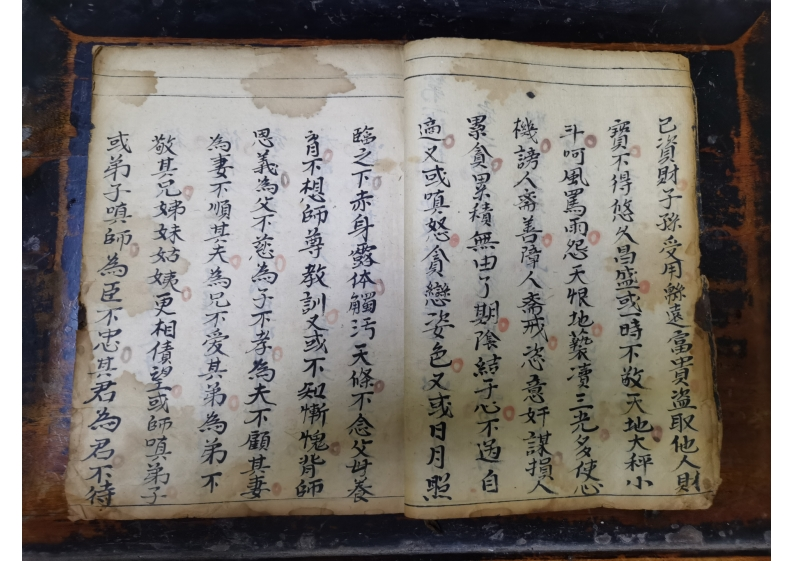 己資財子孫受用緜遠富貴盜取他人財
寳不得悠久昌盛或一時不敬天地大秤小
斗呵風罵雨怨天恨地褻凟三光多使心
機謗人斋善障人斋戒恣意奸謀損人
累貪累積無由了期陰結子心不過自
過又或嗔怒貪戀姿色又或日月照
臨之下赤身露体觸汚天條不念父母養
育不想師尊教訓又或不知慚愧背師
恩義為父不慈為子不孝為夫不顧其妻
為妻不順其夫為兄不愛其弟為弟不
敬其兄姊妹姑姨更相債望或師嗔弟子
或弟子嗔師為臣不忠其君為君不待